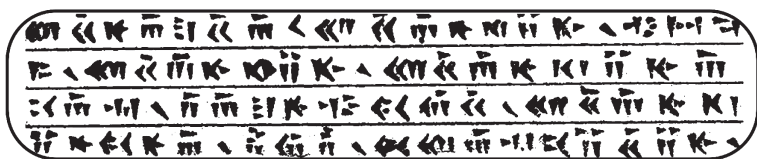 𐎧𐏁𐎹𐎠𐎼𐏁𐎠𐏐𐎧𐏁𐎠𐎹𐎰𐎡𐎹𐏐𐎺𐏀𐎼
𐎣𐏐𐎧𐏁𐎠𐎹𐎰𐎡𐎹𐏐𐎧𐏁𐎠𐎹𐎰𐎡𐎹𐎠
𐎴𐎠𐎶𐏐𐎭𐎠𐎼𐎹𐎺𐏃𐎢𐏁𐏐𐎧𐏁𐎠𐎹𐎰
𐎡𐎹𐏃𐎹𐎠𐏐𐎱𐎢𐏂𐏐𐏃𐎧𐎠𐎶𐎴𐎡𐏁𐎡𐎹𐏐